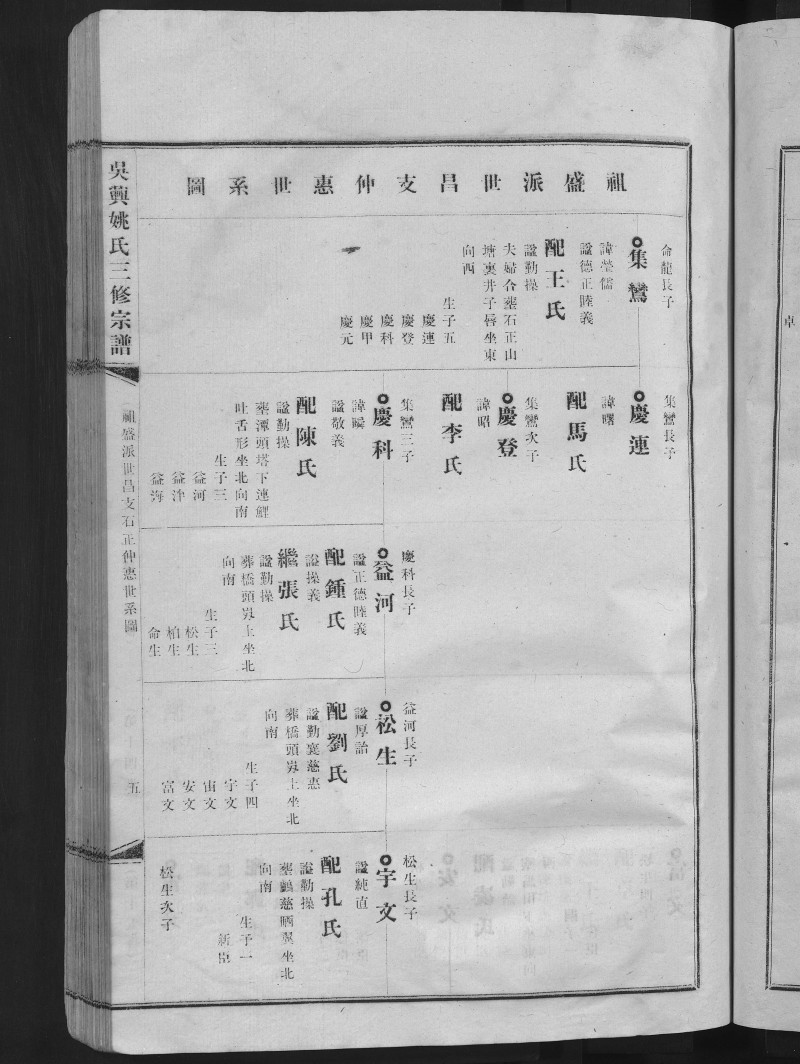 祖盛派世昌支仲惠世系圖
命龍長子
集鸞
諱瑩儒
諡德正睦義
配王氏
諡勤操
夫婦合葬石正山
塘裏井子唇坐東
向西
生子五
慶連
慶登
慶科
慶甲
慶元
集鸞長子
慶連
諱曙
配馬氏
集鸞次子
慶登
諱昭
配李氏
集鸞三子
慶科
諱瞬
諡敬義
配陳氏
諡勤操
葬潭頭塔下連鯉
吐舌形坐北向南
生子三
益河
益洋
益海
慶科長子
益河
諡正德睦義
配鍾氏
諡操義
繼張氏
諡勤操
葬橋頭㘭上坐北
向南
生子三
松生
柏生
命生
益河長子
松生
諡厚詒
配劉氏
諡勤襄慈惠
葬橋頭㘭上坐北
向南
生子四
宇文
宙文
安文
富文
松生長子
宇文
諡純直
配孔氏
諡勤操
坐北
向南
生子一
新臣
松生次子
吳興姚氏三修宗譜
祖盛派世昌支石正仲惠世系圖
五
卓